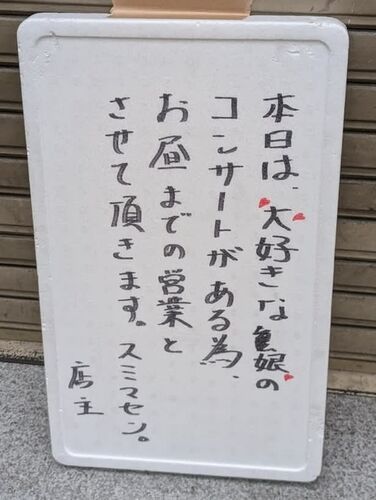 本日は、大好きな娘の
コンサートがある為、
お昼までの営業と
させて頂きます。スミマセン。
店主